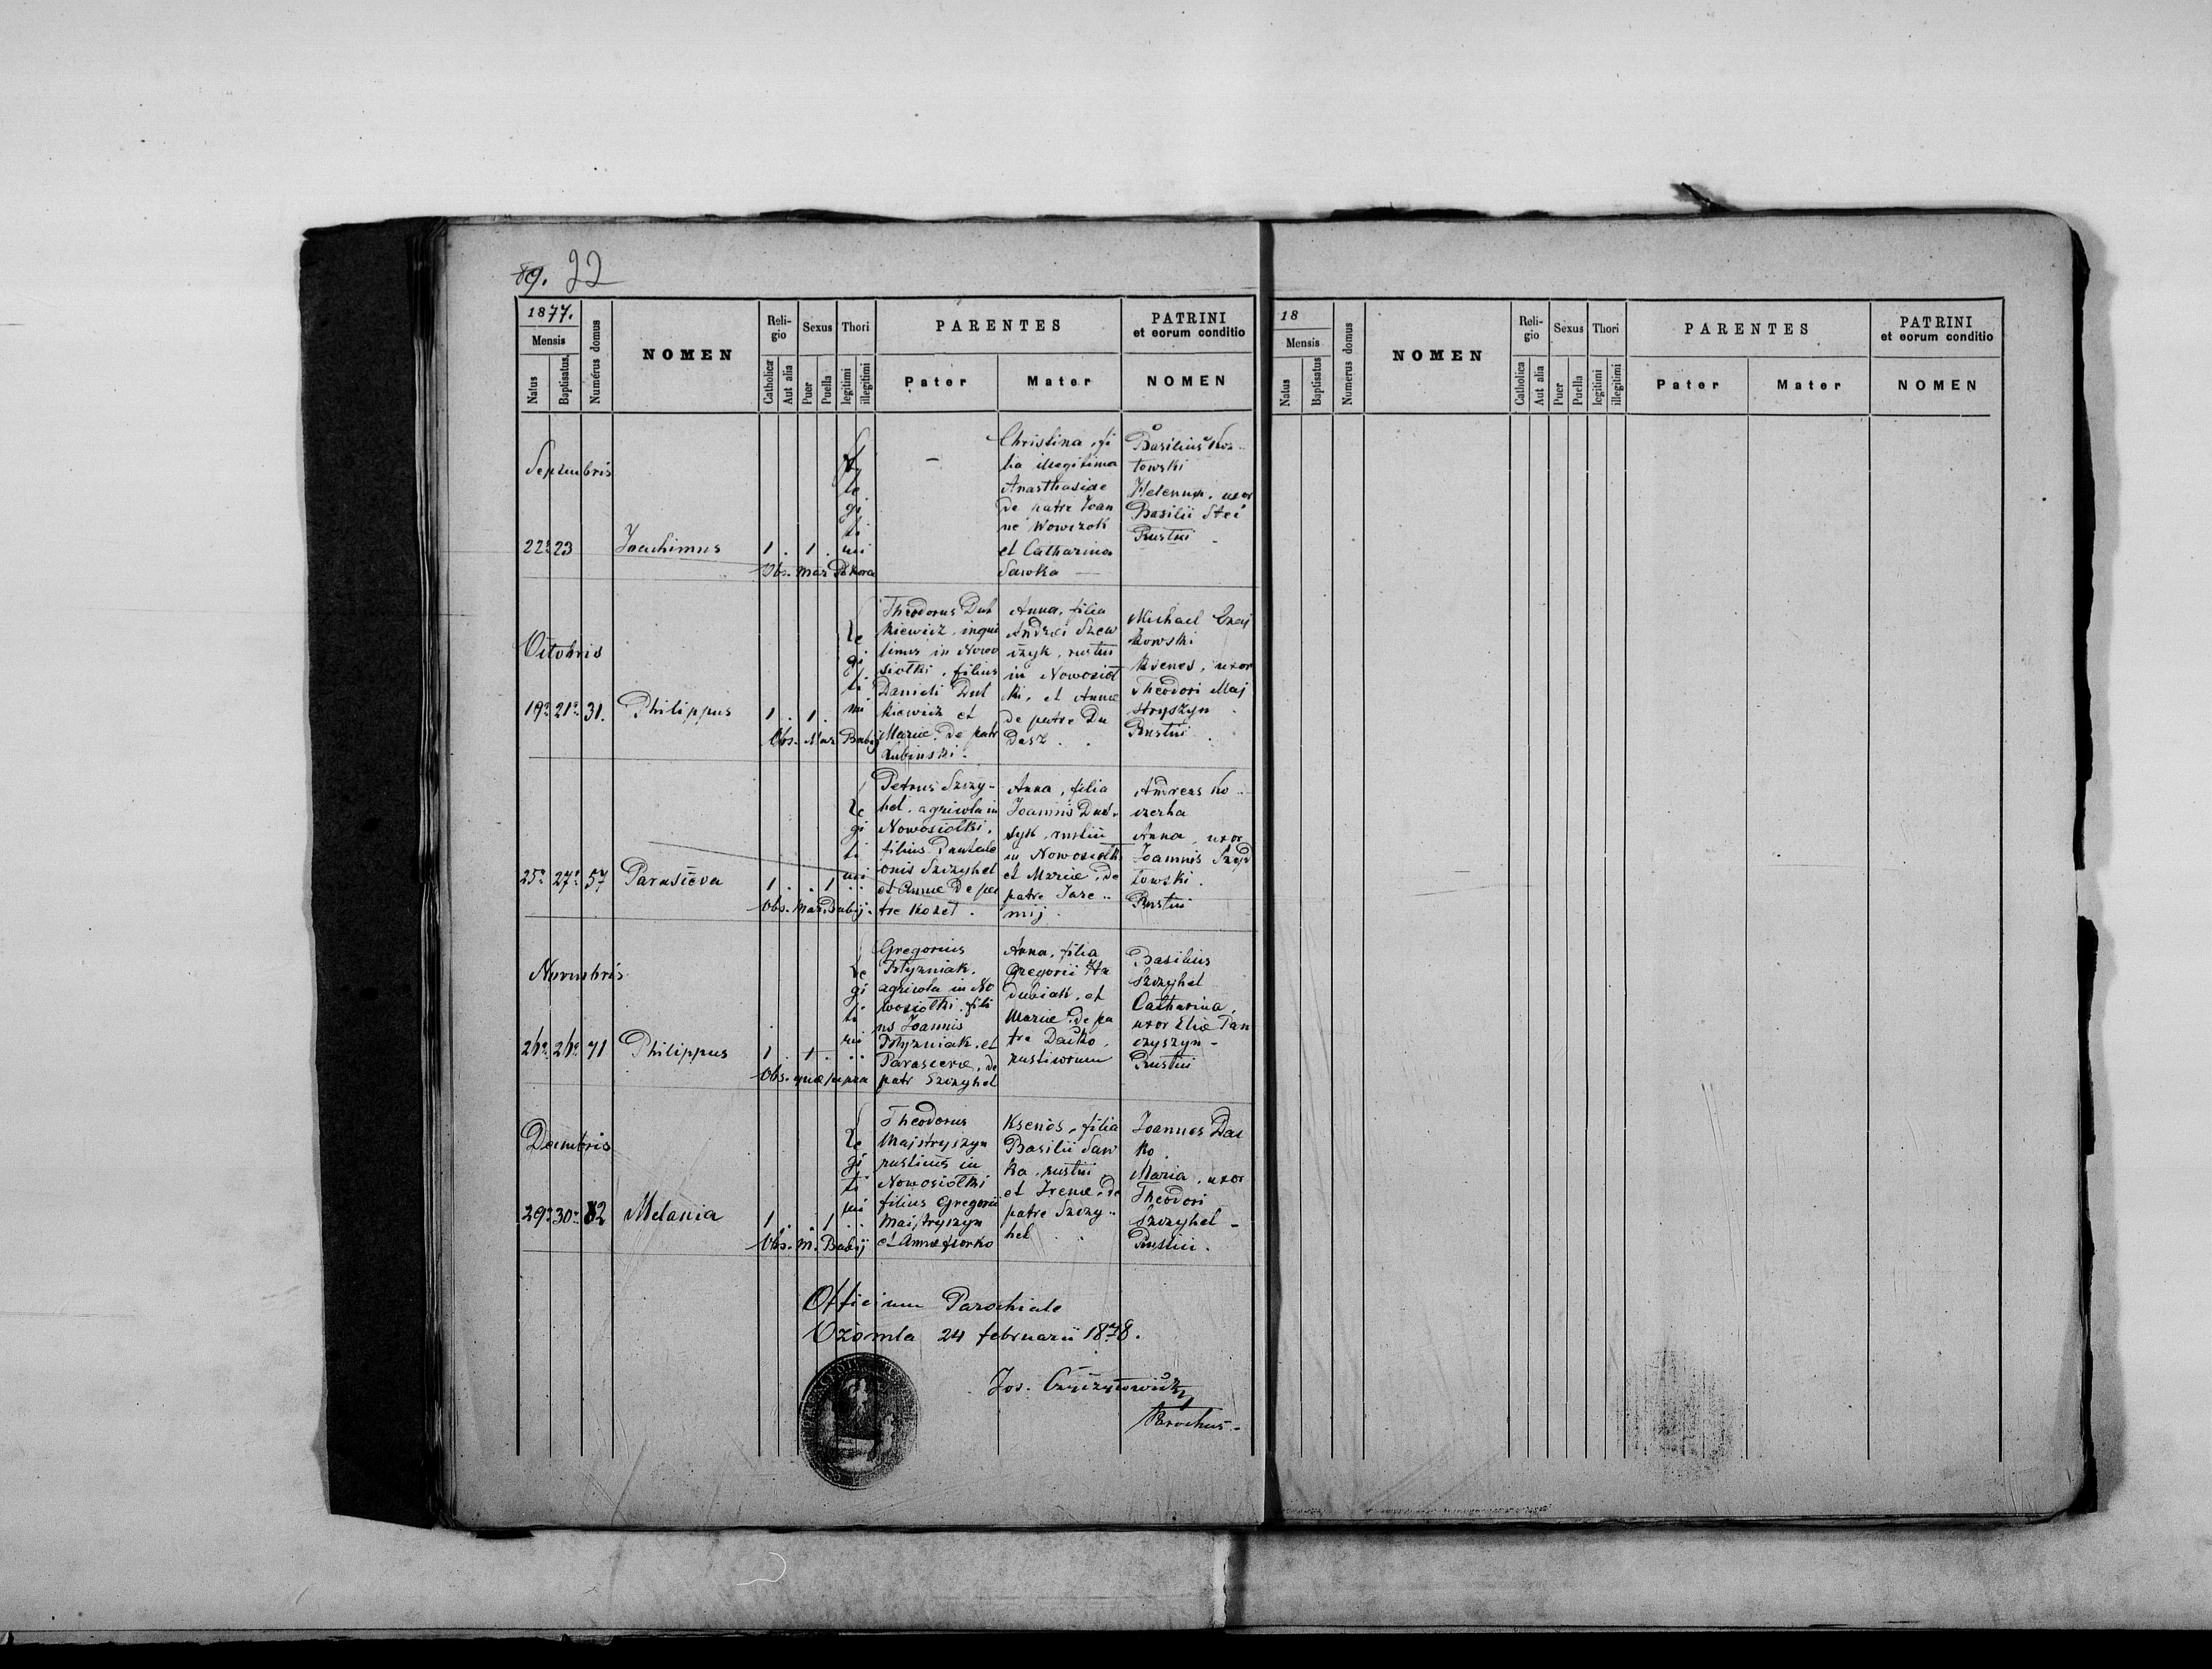 89. 22
1877.
Mensis
Natus
Baptisatus
Numerus domus
NOMEN
Religio
Catholica
Aut alia
Sexus
Puer
Puella
Thori
legitimi
illegitimi
PARENTES
Pater
Mater
PATRINI
et eorum conditio
NOMEN
Septembris
22 23
Joachimus
1 . 1 .
Obs. Mar.
-
Christina, fi
lia illegitima
Anasthasiae
de patre Joan
ne Wowczok
et Catharina
Sawka
Basilius Koz
lowski
Helenna, uxor
Basilii
Rustici
Octobris
19 21 31.
Philippus
1 . 1 .
le
gi
ti
mi
Obs. Mar Babij
Theodorus Dut
kiewicz, inqui
linus in Nowo
siołki, filius
Danieli Dut
kiewicz et
Mariae, de patr
Lubinski.
Anna, filia
Andrei Szew
czyk, rustici
in Nowosioł
ki, et Annae
de patre Du
dasz
Michael Czaj
kowski
Ksenes, uxor
Theodori Maj
stryszyn
Rustici
25 27 57
Parasceva
1 . . 1
le
gi
ti
mi
Obs. Mar. Babij.
Petrus Szczy-
hel, agricola in
Nowosiołki,
filius Pantale
onis Szczyhel
et Annae de pa
tre Kozeł.
Anna, filia
Joannis Dud-
syk, rustici
in Nowosiołki
et Mariae, de
patre Jare-
mij.
Andreas Ko-
czerha
Anna, uxor
Joannis Szep
towski.
Rustici
Novembris
26 26 71
Philippus
1 . 1 .
le
gi
ti
mi
Obs. quae supra
Gregorius
agricola in No
wosiołki, fili
us Joannis
Parascevae, de
patr Szczyhel
Anna, filia
Gregorii Hu
dubiak, et
Mariae, de pa
tre Dacko,
rusticorum
Basilius
Szczyhel
Catharina,
uxor Eliae Pan
czyszyn -
Rustici
Decembris
29 30 82
Melania
1 . . 1
le
gi
ti
mi
Obs. M. Babij
Theodorus
Majstryszyn
rusticus in
Nowosiołki
filius Gregorii
Majstryszyn
et Annae Fiorko
Ksenes, filia
Basilii Saw
ka, rustici
et Irenae, de
patre Szczy-
hel
Joannes Dac
ko.
Maria, uxor
Theodori
Szczyhel -
Rustici.
Officium Parochiale
Ozomla 24 februarii 1878.
Jos.
Parochus -
18
Mensis
Natus
Baptisatus
Numerus domus
NOMEN
Religio
Catholica
Aut alia
Sexus
Puer
Puella
Thori
legitimi
illegitimi
PARENTES
Pater
Mater
PATRINI
et eorum conditio
NOMEN